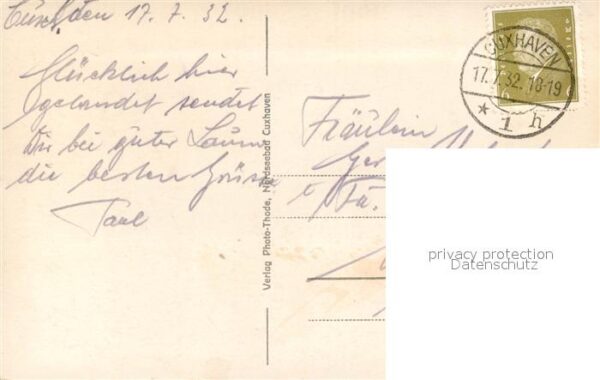 Cuxhaven 17.7.32.
Glücklich hier
gelandet sendet
Dir bei guter Laune
die besten Grüsse
Paul
Verlag Photo-Thode, Nordseebad Cuxhaven
CUXHAVEN
17.7.32.18-19
* 1 h
Fräulein
privacy protection
Datenschutz